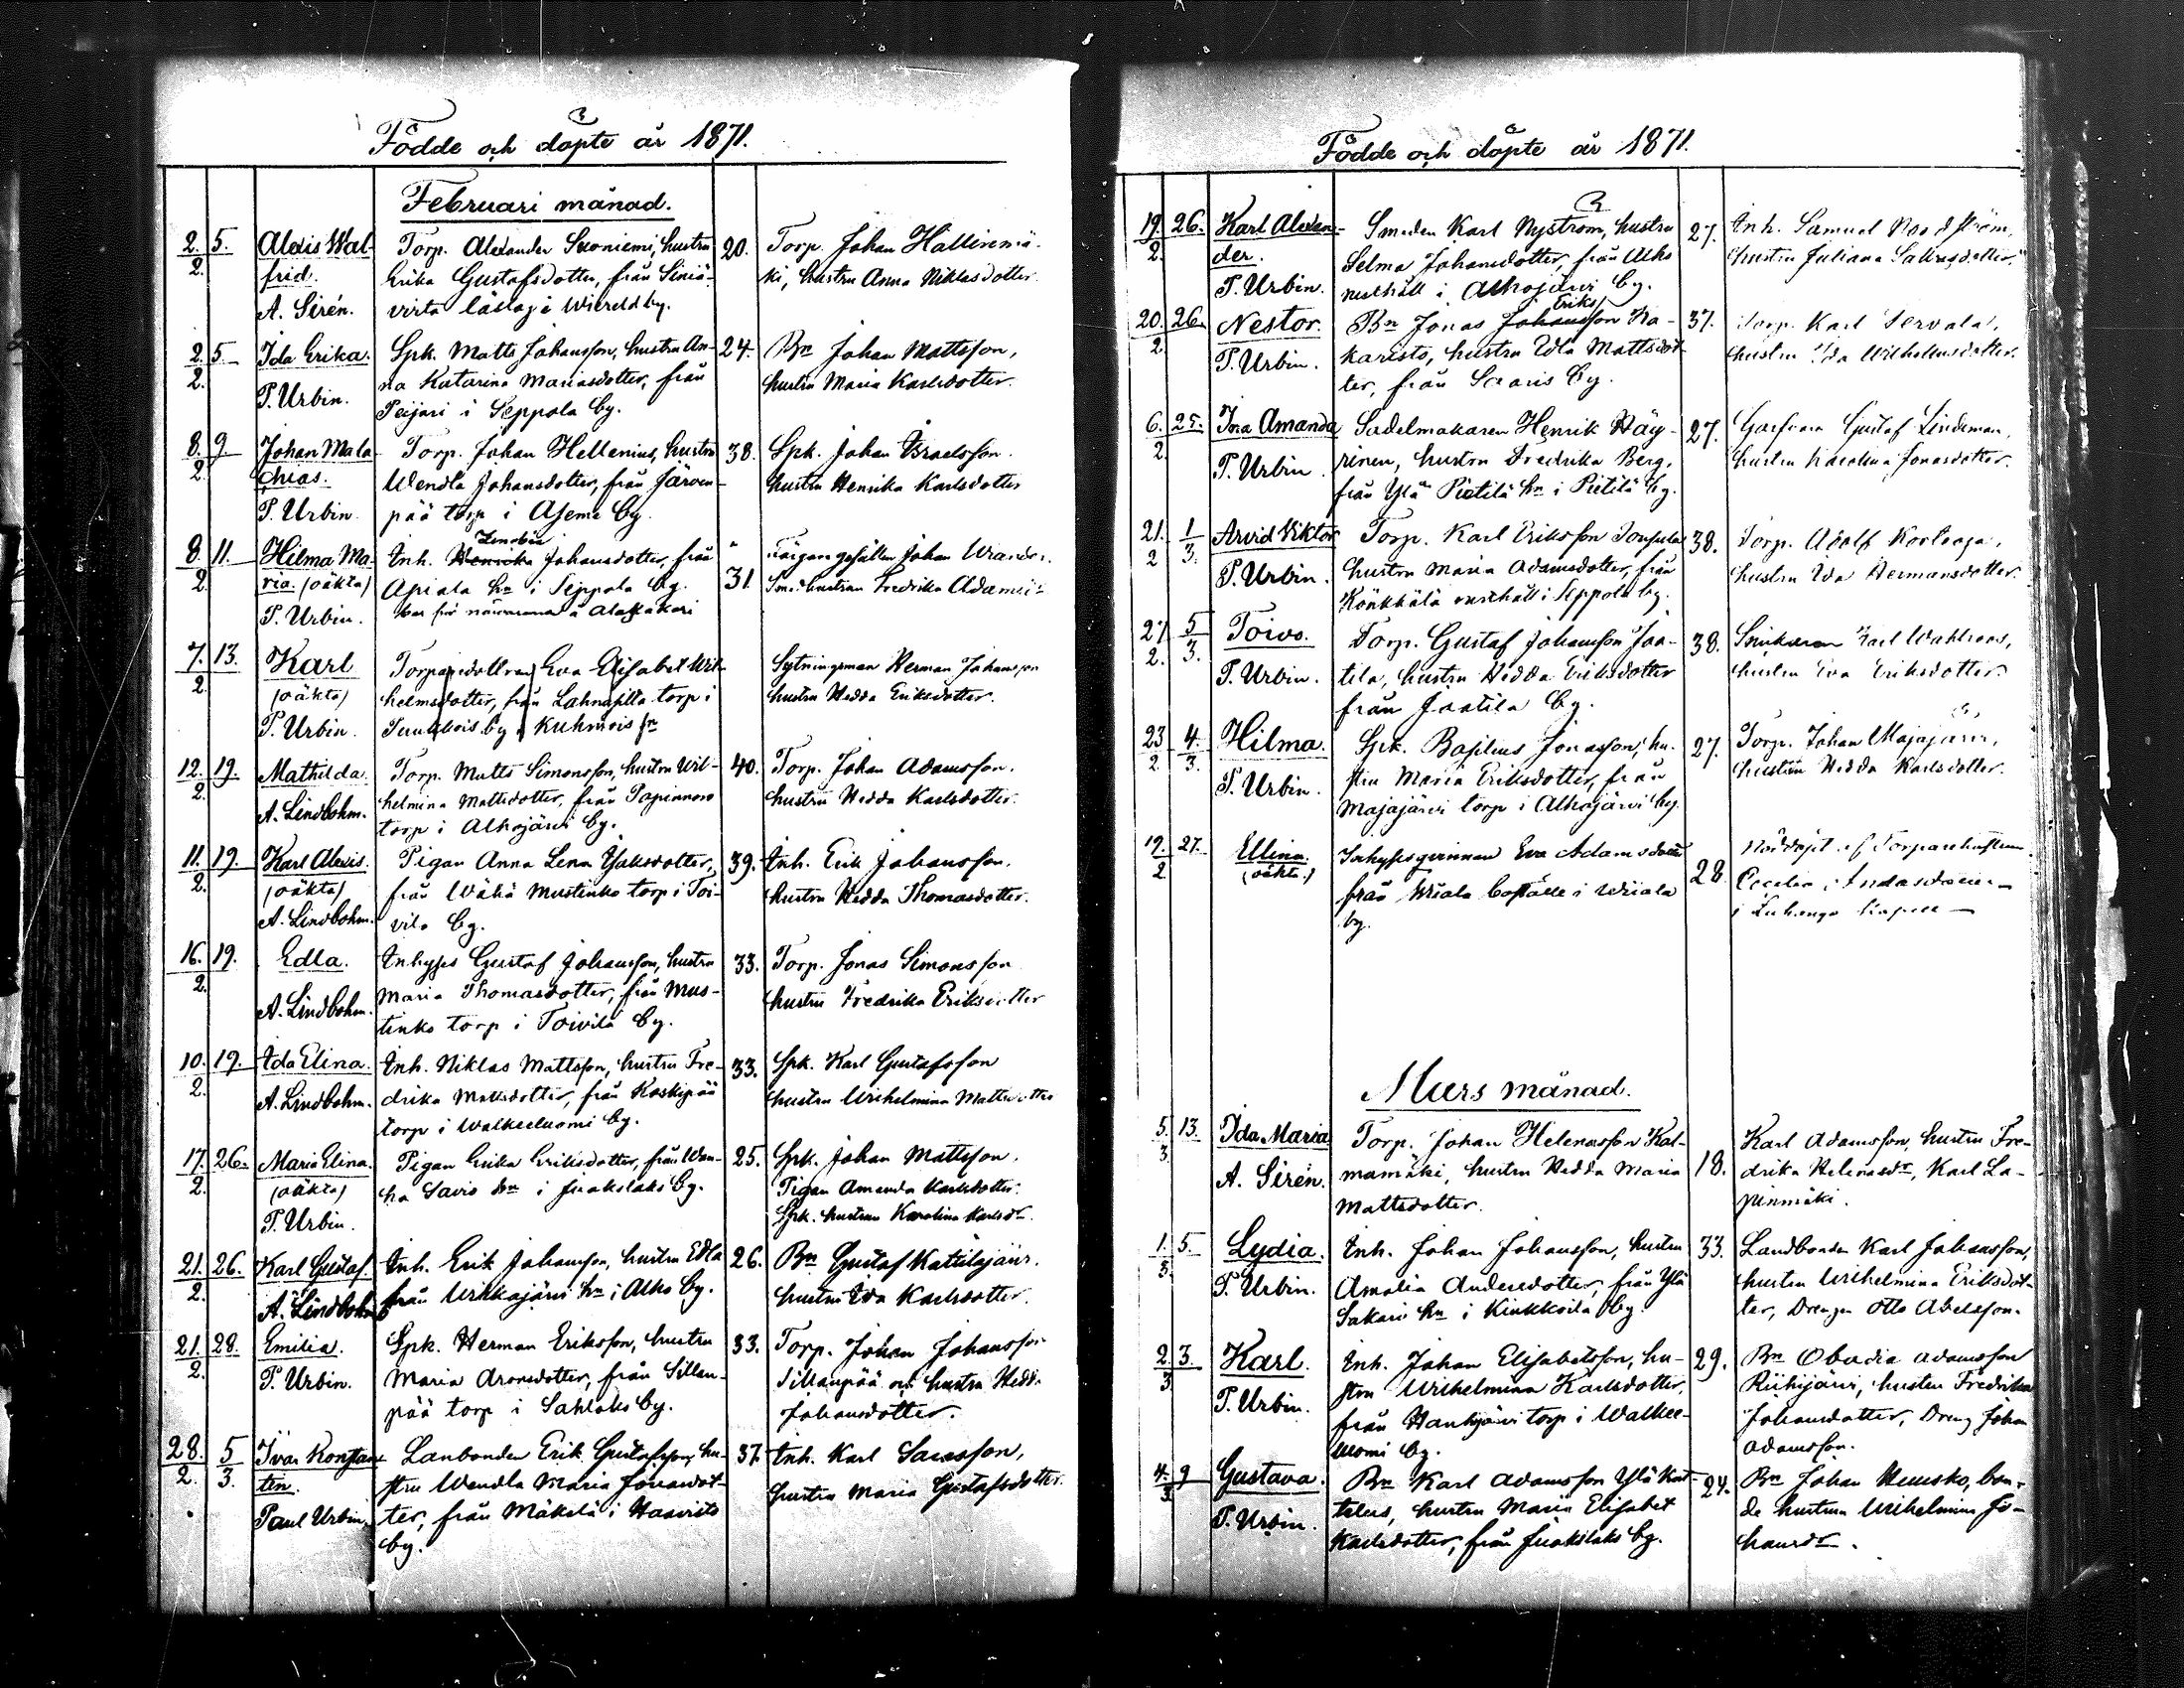 Födde och döpte år 1871.
Februari månad.
2. 5. Alexis Wal- Torp. Alexander Saoniemi, hustru 20. Torp. Johan Hallinmä-
2. frid. Erika Gustafsdotter, från Siniä- ki, hustru Anna Niklasdotter
A. Sirén. virta i by.
2. 5. Ida Erika. Spk. Matts Johansson, hustru An- 24. Bn Johan Mattsson,
2. na Katarina Mariasdotter, från hustru Maria Karlsdotter.
P. Urbin. Peijari i Seppola by.
8. 9. Johan Mala- Torp. Johan Hellenius, hustru 38. Spk. Johan Israelsson.
2. chias. Wendla Johansdotter, från Järven- hustru Henrika Karlsdotter
P. Urbin. pää torp i Asema by.
8. 11. Hilma Ma- Inh. Henrika Johansdotter, från Johan
2. ria (oäkta) Apiala hn i Seppola by. 31. hustrun Fredrika
P. Urbin. har för närvarande å
7. 13. Karl Torparedottren Eva Elisabet Wil- Sytningsman Herman Johansson
2. (oäkta) helmsdotter, från torp i hustru Hedda Eriksdotter.
P. Urbin. by i Kuhmois sn
12. 19. Mathilda. Torp. Matts Simonsson, hustru Wil- 40. Torp. Johan Adamsson.
2. helmina Mattsdotter, från Papinnoro hustru Hedda Karlsdotter.
A. Lindbohm. torp i Alhojärvi by.
11. 19. Karl Alexis. Pigan Anna Lena Isaksdotter, 39. Inh. Erik Johansson.
2. (oäkta) från Wähä Mustinko torp i Toi- hustru Hedda Thomasdotter.
A. Lindbohm. vila by.
16. 19. Edla. Inhyses Gustaf Johansson, hustru 33. Torp. Jonas Simonsson
2. Maria Thomasdotter, från Mus- hustru Fredrika Eriksdotter
A. Lindbohm. tinko torp i Toivila by.
10. 19. Ida Elina. Inh. Niklas Mattsson, hustru Fre- 33. Spk. Karl Gustafsson
2. A. Lindbohm. drika Mattsdotter, från Koskipää hustru Wilhelmina Mattsdotter
torp i Walkeeluomi by.
17. 26. Maria Elina. Pigan Erika Eriksdotter, från Wan- 25. Spk. Johan Mattsson.
2. (oäkta) ha Savio hn i Juokslaks by. Pigan Amanda Karlsdotter.
P. Urbin. Spk. hustrun Karolina Karlsdr.
21. 26. Karl Gustaf. Inh. Erik Johansson, hustru Edla 26. Bn Gustaf Kattilajärvi.
2. A. Lindbohm från Wihkajärvi hn i Alho by. hustru Ida Karlsdotter.
21. 28. Emilia. Spk. Herman Eriksson, hustru 33. Torp. Johan Johansson
2. P. Urbin. Maria Aronsdotter, från Sillan- Sillanpää och hustru Hedda
pää torp i Sahloks by. Johansdotter.
28. 5 Ivar Konstan- Lanbonden Erik Gustafsson, hu- 37. Inh. Karl
2. 3. tin. stru Wendla Maria Jonasdot- hustru Maria Gustafsdotter
Paul Urbin. ter, från Mäkelä i Haavisto
by.
Födde och döpte år 1871.
19. 26. Karl Alexan- Smeden Karl Nyström, hustru 27. Inh. Samuel Nordström,
2. der. Selma Johansdotter, från Alho hustru Juliana
P. Urbin. rusthåll i Alhojärvi by.
20. 26. Nestor. Bn Jonas Johansson Eriks Ha- 37. Torp. Karl Servala,
2. P. Urbin. karisto, hustru Edla Mattsdot- hustru Ida Wilhelmsdotter.
ter, från Saaris by.
6. 25. Ina Amanda Sadelmakaren Henrik Häy- 27. Garfvaren Gustaf Lindeman,
2. P. Urbin. rinen, hustru Fredrika Berg, hustru Karolina Jonasdotter.
från Ylä Pietilä hn i Pietilä by.
21. 1 Arvid Viktor Torp. Karl Eriksson 38. Torp. Adolf Kortoaja,
2 3. P. Urbin. hustru Maria Adamsdotter, från hustru Eda Hermansdotter.
Könkkälä rusthåll i Seppola by.
27. 5 Toivo. Torp. Gustaf Johansson Jaa- 38. Snickaren Karl Wahlroos,
2. 3. P. Urbin. tila, hustru Hedda Eriksdotter hustru Eva Eriksdotter.
från Jaatila by.
23 4. Hilma. Spk. Basilius Jonasson, hu- 27. Torp. Johan Majajärvi,
2. 3. P. Urbin. stru Maria Eriksdotter, från hustru Hedda Karlsdotter.
Majajärvi torp i Alhojärvi by.
19. 27. Ellina. Inhysesqvinnan Eva Adamsdotter 28. Nöddöpt af Torparehustrun
2 (oäkta.) från Wiiala boställe i Wiiala Cecilia Andersdotter
by. i Luhanga kapell
Mars månad.
5. 13. Ida Maria Torp. Johan Helenasson Kal- 18. Karl Adamsson, hustru Fre-
3. A. Sirén. mamäki, hustru Hedda Maria drika Helenasdr, Karl La-
Mattsdotter. pinmäki.
1. 5. Lydia. Inh. Johan Johansson, hustru 33. Landbonden Karl Johansson,
3. P. Urbin. Amalia Andersdotter, från Ylä hustru Wilhelmina Eriksdot-
Sakari hn i Kinkkoila by. ter, Drengen Otto Abelsson.
2. 3. Karl. Inh. Johan Elisabetsson, hu- 29. Bn Obadia Adamsson
3 P. Urbin. stru Wilhelmina Karlsdotter, Riihijärvi, hustru Fredrika
från Hankijärvi torp i Walkee- Johansdotter, Dreng Johan
luomi by. Adamsson.
4. 9 Gustava. Bn Karl Adamsson Ylä Knt- 24. Bn Johan Humsko, bon-
3 P. Urbin. telus, hustru Maria Elisabet de hustrun Wilhelmina Jo-
Karlsdotter, från Juokslaks by. hansdr.